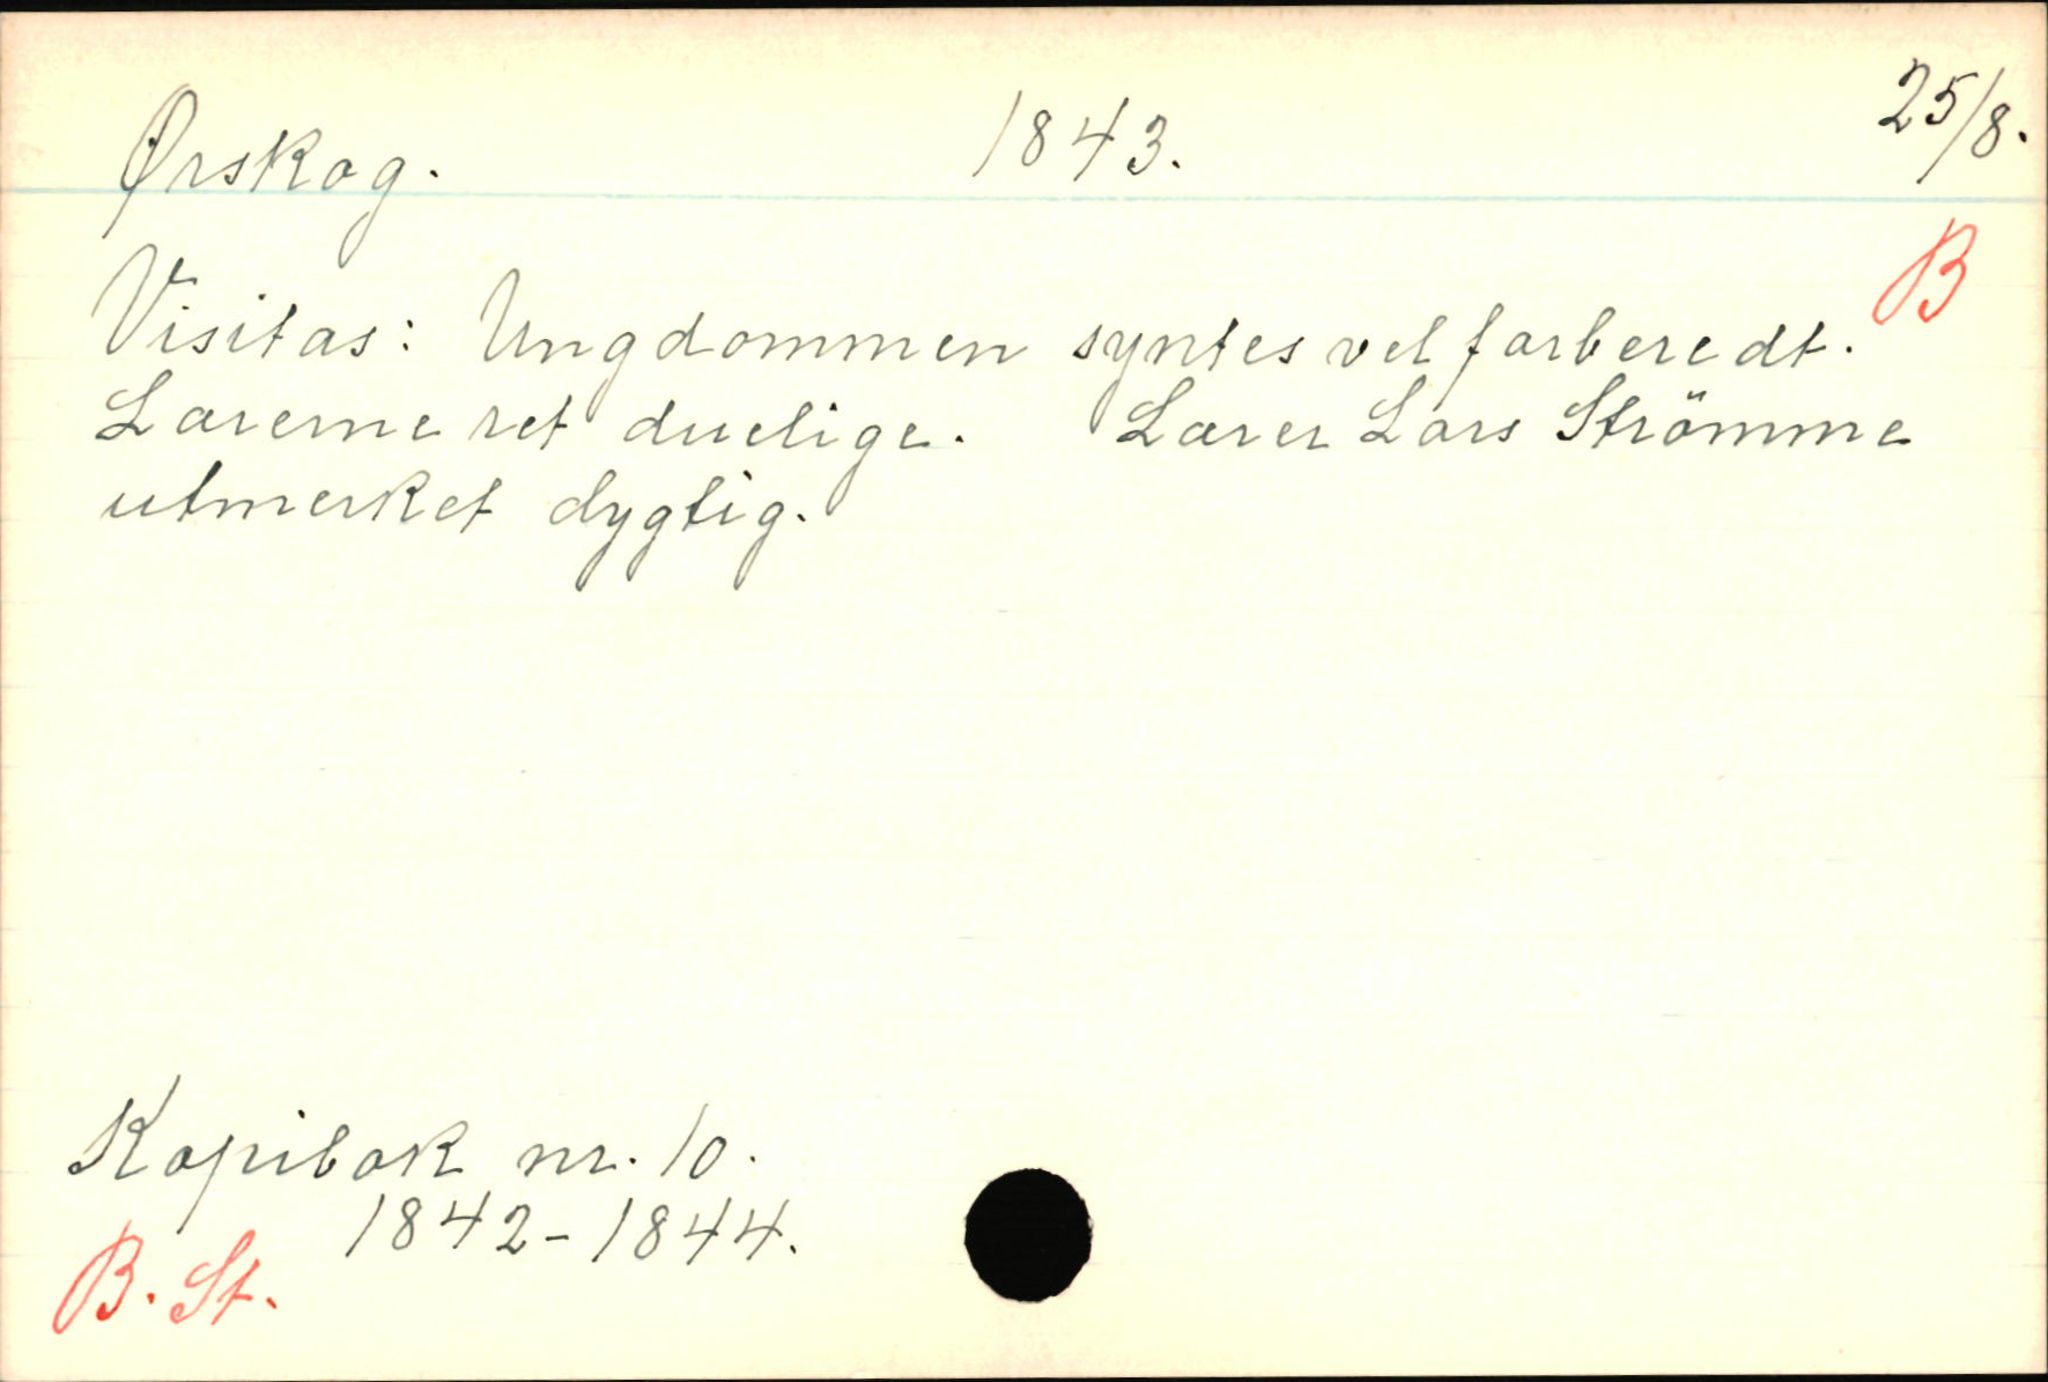 Ørskog. 1843. 25/8.
B
Visitas: Ungdommen syntes vel forberedt.
Lærerne ret duelige. Lærer Lars Strömme
utmerket dygtig.
Kopibok nr. 10.
1842-1844.
B. St.